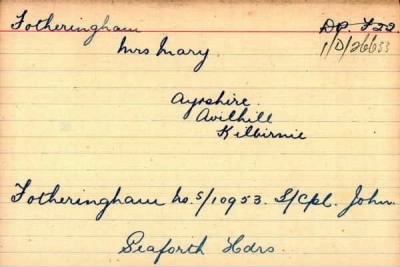 Fotheringham DP. F22.
Mrs Mary. 1/D/26653
Ayrshire.
Avilhill
Kilbirnie
Fotheringham No. S/10953. L/Cpl. John.
Seaforth Hdrs.